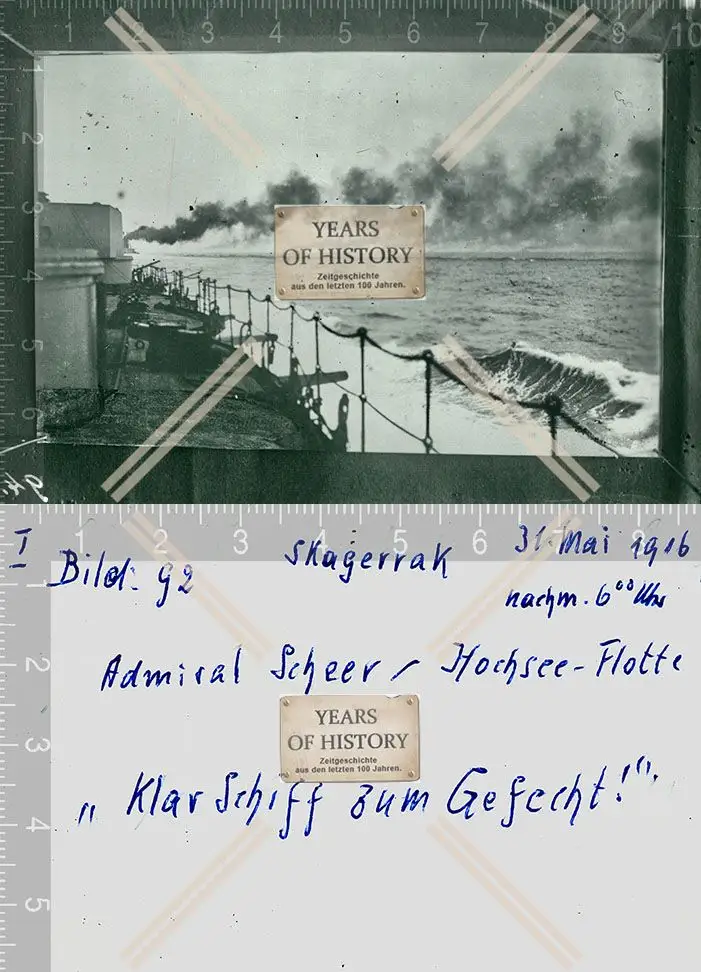 1 2 3 4 5 6 7 8 9 10
1
2
3
4
5
6
YEARS
OF HISTORY
Zeitgeschichte
aus den letzten 100 Jahren.
1 2 3 4 5 6 7 8
I Bild: 92 Skagerrak 31. Mai 1916
nachm. 6⁰⁰ Uhr
Admiral Scheer - Hochsee-Flotte
YEARS
OF HISTORY
Zeitgeschichte
aus den letzten 100 Jahren.
„Klar Schiff zum Gefecht!“.
1
2
3
4
5